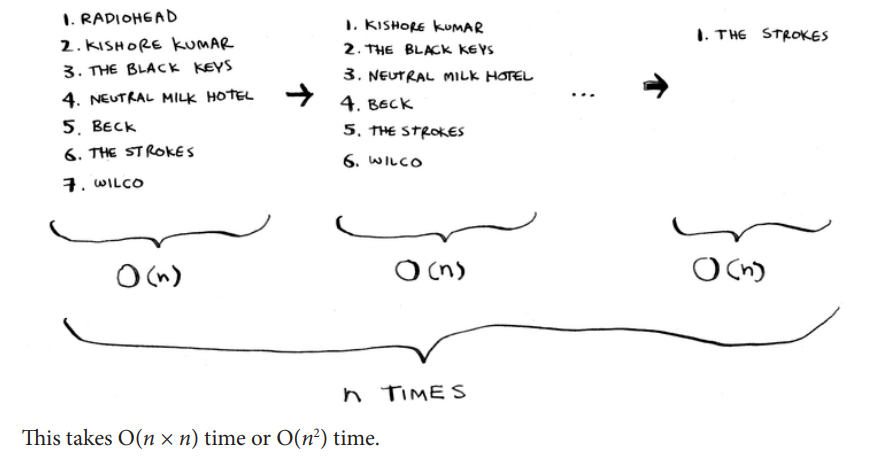 1. RADIOHEAD
2. KISHORE KUMAR
3. THE BLACK KEYS
4. NEUTRAL MILK HOTEL
5. BECK
6. THE STROKES
7. WILCO
1. KISHORE KUMAR
2. THE BLACK KEYS
3. NEUTRAL MILK HOTEL
4. BECK
5. THE STROKES
6. WILCO
...
1. THE STROKES
O(n)
O(n)
O(n)
n TIMES
This takes O(n × n) time or O(n²) time.